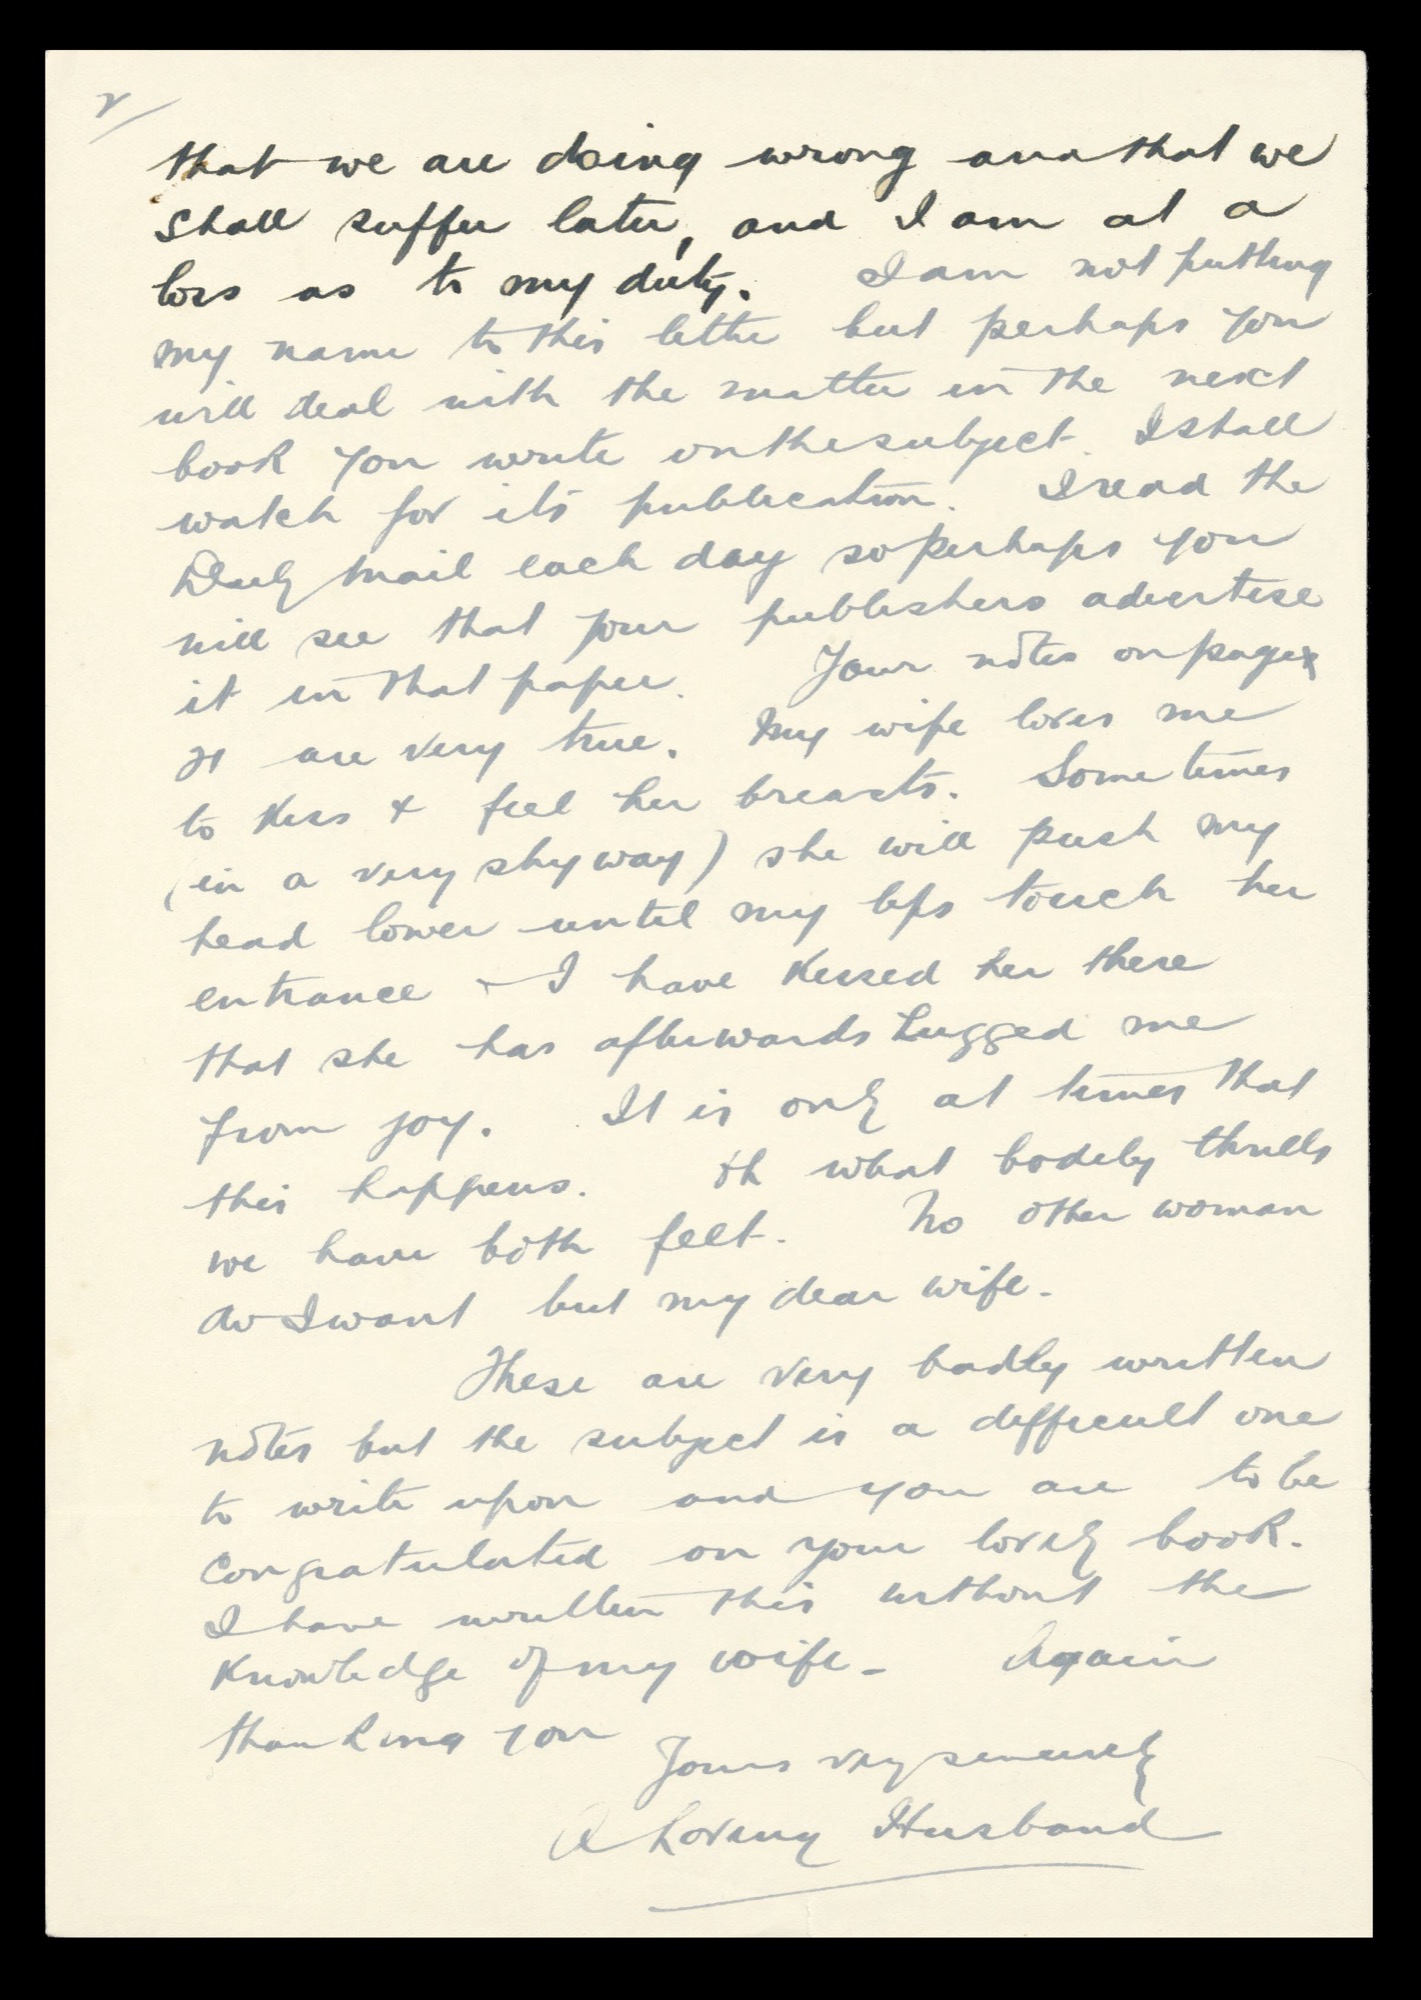 2/
that we are doing wrong and that we
shall suffer later, and I am at a
loss as to my duty. I am not putting
my name to this letter but perhaps you
will deal with the matter in the next
book you write on the subject. I shall
watch for its publication. I read the
Daily Mail each day so perhaps you
will see that your publishers advertise
it in that paper. Your notes on page
are very true. My wife loves me
to kiss & feel her breasts. Sometimes
(in a very shy way) she will push my
head lower until my lips touch her
entrance I have kissed her there
that she has afterwards hugged me
from joy. It is only at times that
this happens. Oh what bodily thrills
we have both felt. No other woman
do I want but my dear wife.
These are very badly written
notes but the subject is a difficult one
to write upon and you are to be
congratulated on your lovely book.
I have written this without the
knowledge of my wife - Again
thanking you
Yours very sincerely
A Loving Husband